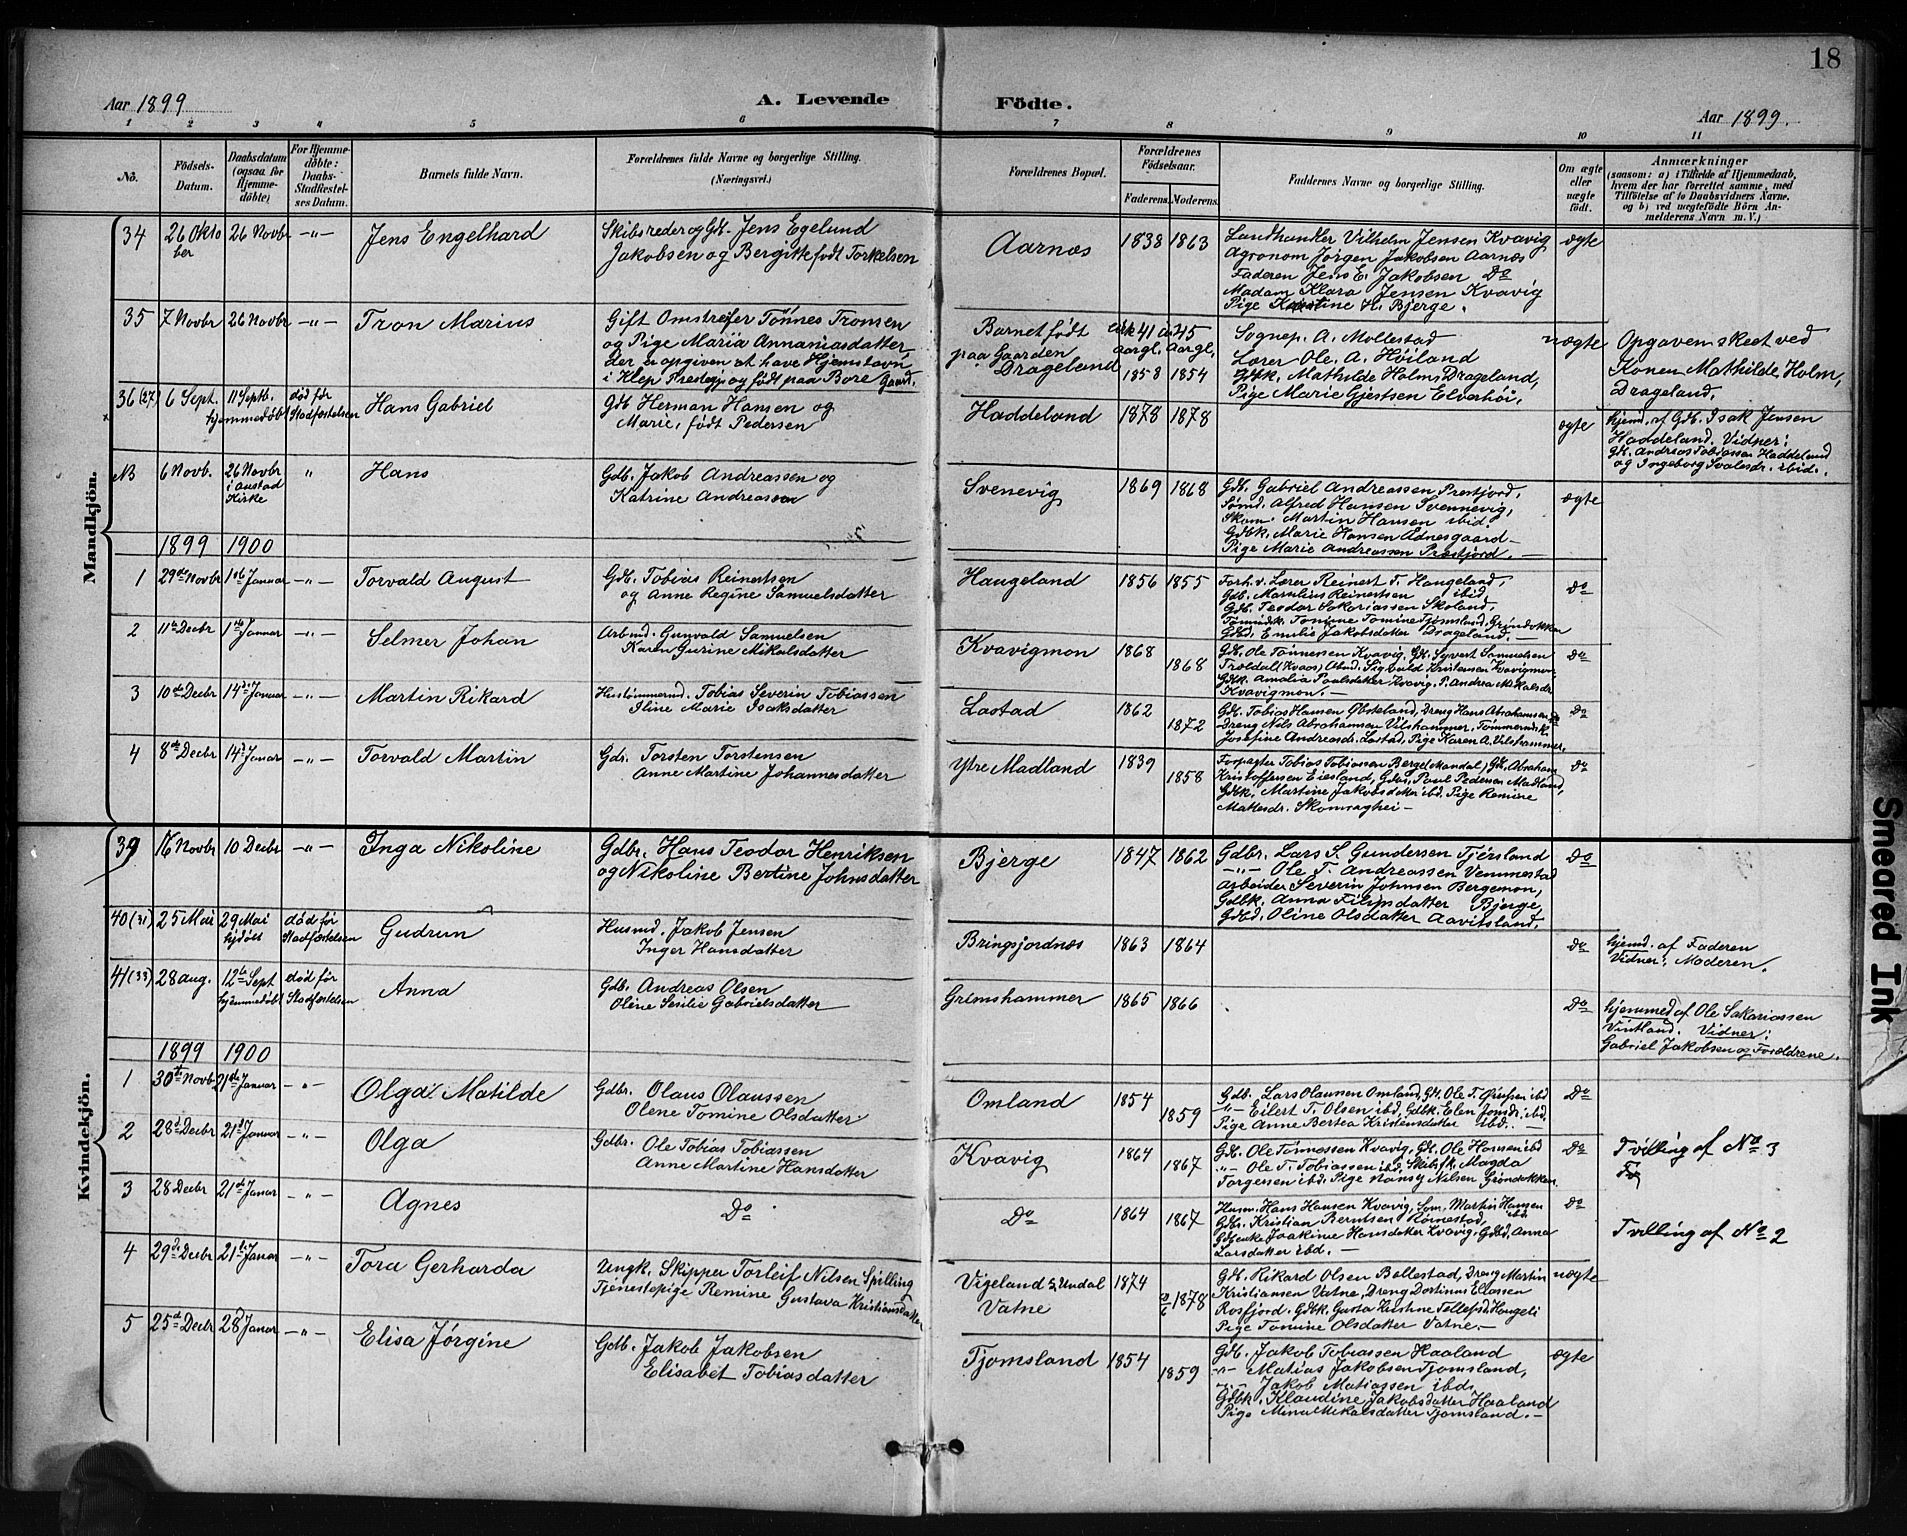 18
Aar 1899
A. Levende
Födte.
Aar 1899.
1 2 3 4 5 6 7 8 9 10 11
No.
Födsels-
Datum.
Daabsdatum
(ogsaa for
Hjemme-
döbte)
For Hjemme-
döbte:
Daabs-
Stadfæstel-
ses Datum.
Barnets fulde Navn.
Forældrenes fulde Navne og borgerlige Stilling.
(Næringsvei.)
Forældrenes Bopæl.
Forældrenes
Födselsaar.
Faderens.
Moderens.
Faddernes Navne og borgerlige Stilling.
Om ægte
eller
uægte
födt.
Anmærkninger
(saasom: a) i Tilfælde af Hjemmedaab,
hvem der har forrettet samme, med
Tilföielse af to Daabsvidners Navne,
og b) ved uægtefödte Börn An-
melderens Navn m. V.)
Mandkjön.
34
26 Okto
ber
26 Novbr
-"-
Jens Engelhard
Skibsreder og Gdb. Jens Egelund
Jakobsen og Bergitte født Torkelsen
Aarnæs
1838
1863
Landhandler Vilhelm Jensen Kvavig
Agronom Jørgen Jakobsen Aarnæs
Faderen Jens E. Jakobsen Do
Madam Klara Jensen Kvavig
Pige Kristine H. Bjerge.
ægte
35
7 Novbr
26 Novbr
-"-
Tron Marius
Gift Omstreifer Tönnes Tronsen
og Pige Maria Annaniasdatter,
der er opgiven at have Hjemstavn
i Klep Prestegj og født paa Bore Gaard.
Barnet født
paa Gaarden
Drageland
cirk 41
aar gl.
1858
ca 45
aar gl.
1854
Sognep. A. Mollestad
Lærer Ole. A. Høiland
Gdbk. Mathilde Holm, Drageland,
Pige Marie Gjestsen Elverhøi,
uægte
Opgaven skeet ved
Konen Mathilde Holm,
Drageland.
36 (27)
6 Sept.
11 Septb.
hjemmedøbt
død før
Stadfæstelsen
Hans Gabriel
Gdb Herman Hansen og
Marie, født Pedersen
Haddeland
1878
1878
ægte
hjemd. af Gdb. Isak Jensen
Haddeland. Vidner:
Gdb. Andreas Tobiassen Haddeland
og Ingeborg Svalesdr. ibid.
NB
6 Novb.
26 Novbr
i Austad
Kirke
"
Hans
Gdb. Jakob Andreassen og
Katrine Andreassen
Svenevig
1869
1868
Gdb. Gabriel Andreassen Prestjord,
Sømd. Alfred Hansen Svennevig,
Skom. Martin Hansen ibid.
Gdbk. Marie Hansen Ednesgaard-
Pige Marie Andreassen Prestjord.-
ægte
1899
1900
1
29de Novbr
1ste Januar
-"-
Torvald August
Gdb. Tobias Reinertsen
og Anne Regine Samuelsdatter
Haugeland
1856
1855
Forh.v. Lærer Reinert T. Haugeland,
Gdb. Marselius Reinertsen ibid
Gdb. Teodor Sakariassen Skoland,
Tomine Tomine Tjomsland, Grøndokken
Gdbd. Emilie Jakobsdatter Drageland.-
Do
2
11te Decbr
1ste Januar
-"-
Selmer Johan
Arbmd. Gunvald Samuelsen
Karen Gurine Mikalsdatter
Kvavigmon
1868
1868
Gdb. Ole Tønnessen Kvavig, Gdb. Syvert Samuelsen
Trældal (Kvaas) Abmd. Sigvald Kristensen Kvavigmon
Gdbk. Amalia Paulsdatter Kvavig. P. Andrea Mikalsdr
Kvavigmon.-
Do
3
10de Decbr
14de Januar
-"-
Martin Rikard
Hustømmermd. Tobias Severin Tobiassen
Iline Marie Isaksdatter
Lastad
1862
1872
Gdb. Tobias Hansen Øbsteland, Dreng Hans Abrahamsen
Dreng Nils Abrahamsen Vilshammer, Tømmermdsk.
Josefine Andreasdr. Lastad, Pige Karen A. Vilshammer,
Do
4
8de Decbr
14de Januar
-"-
Torvald Martin
Gdb. Torsten Torstensen
Anne Martine Johannesdatter
Ytre Madland
1839
1858
Forpagter Tobias Tobiassen Berge(Mandal), Gdb. Abraham
Kristoffersen Eiesland, Gdb. Paul Pedersen Madland,
Gdbk. Martine Jakobsdatter ibd. Pige Remine
Mattesdr. Skomraghei-
Do
Kvindekjön.
39
16 Novbr
10 Decbr
-"-
Inga Nikoline
Gdbr. Hans Teodor Henriksen
og Nikoline Bertine Johnsdatter
Bjerge
1847
1862
Gdbr. Lars S. Gundersen Tjersland
-"- Ole T. Andreassen Vemmestad
Arbeider Severin Johnsen Bergemon,
Gdbk. Anna Filipsdatter Bjerge,
Gdbd. Oline Olsdatter Aavitsland.
Do
40 (31)
25 Mai
29 Mai
hjdøbt
død før
Stadfæstelsen
Gudrun
Husmd. Jakob Jensen
Inger Hansdatter
Bringsjordnæs
1863
1864
Do
hjemd. af Faderen
Vidner: Moderen.
41 (33)
28 aug.
12te Sept
hjemmedøbt
død før
Stadfæstelsen
Anna
Gdb. Andreas Olsen
Oline Sesilie Gabrielsdatter
Grimshammer
1865
1866
Do
hjemmed af Ole Sakariassen
Vintland. Vidner:
Gabriel Jakobsen og Forældrene.
1899
1900
1
30te Novb.
21de Januar
-"-
Olga Matilde
Gdbr. Olaus Olaussen
Olene Tomine Olsdatter
Omland
1854
1859
Gdb. Lars Olaussen Omland, Gdb. Ole T. ibd
-"- Eilert T. Olsen ibd, Gdbk. Elen Jonsdr. ibd.
Pige Anne Bertea Kristensdatter ibd.-
Do
2
28de Decbr
21de Januar
-"-
Olga
Gdbr. Ole Tobias Tobiassen
Anne Martine Hansdatter
Kvavig
1864
1867
Gdb. Ole Tønnessen Kvavig, Gdb. Ole Hansen ibd
-"- Ole T. Tobiassen ibd, Skibsf.k. Magda
Torgersen ibd. Pige Nansy Nilsen Grøndokken
Do
Tvilling af No 3
3
28 Decbr
21de Januar
-"-
Agnes
Do
Do
1864
1867
Husm. Hans Hansen Kvavig, Søm. Martin Hansen
ibd.
Gdb. Kristian Berntsen Rørnestad,
Gdbenke Joakine Hansdatter Kvavig. Gdbd. Anna
Larsdatter ibd.-
Do
Tvilling af No 2
4
29de Decbr
21de Januar
-"-
Tora Gerharda
Ungk. Skipper Torleif Nilsen Spilling
Tjenestepige Remine Gustava Kristiansdatter
Vigeland S. Undal
Vatne
1874
1878
Gdb. Rikard Olsen Bollestad, Dreng Martin
Kristiansen Vatne, Dreng Dortinus Eliassen
Rosfjord. Gdbk. Gusta Kristine Tellefsd. Haugeli
Pige Tomine Olsdatter Vatne.-
uægte
5
25de Decbr
28 Januar
-"-
Elisa Jørgine
Gdb. Jakob Jakobsen
Elisabet Tobiasdatter
Tjomsland
1854
1859
Gdb. Jakob Tobiassen Haaland
-"- Matias Jakobsen Tjomsland,
-"- Jakob Matiassen ibd.
Gdbk. Klaudine Jakobsdatter Haaland
Pige Mina Mikalsdatter Tjomsland.-
ægte
Smeared Ink